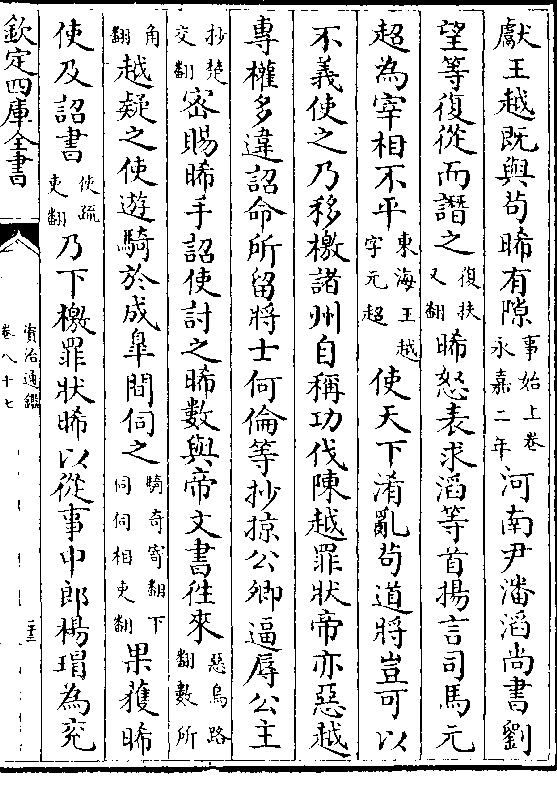 獻王越既與茍晞有隙事始上卷永嘉二年河南尹潘滔尚書劉
望等復從而譖之復扶又翻晞怒表求滔等首揚言司馬元
超為宰相不平東海王越字元超使天下淆亂茍道將豈可以
不義使之乃移檄諸州自稱功伐陳越罪狀帝亦惡越
專權多違詔命所留將士何倫等抄掠公卿逼辱公主
抄楚交翻密賜晞手詔使討之晞數與帝文書往來惡烏路翻數所
角翻越疑之使遊騎於成臯間伺之騎奇寄翻下同伺相吏翻果獲晞
使及詔書使疏吏翻乃下檄罪狀晞以從事中郎楊瑁為兖
欽定四庫全書
資治通鑑
卷八十七